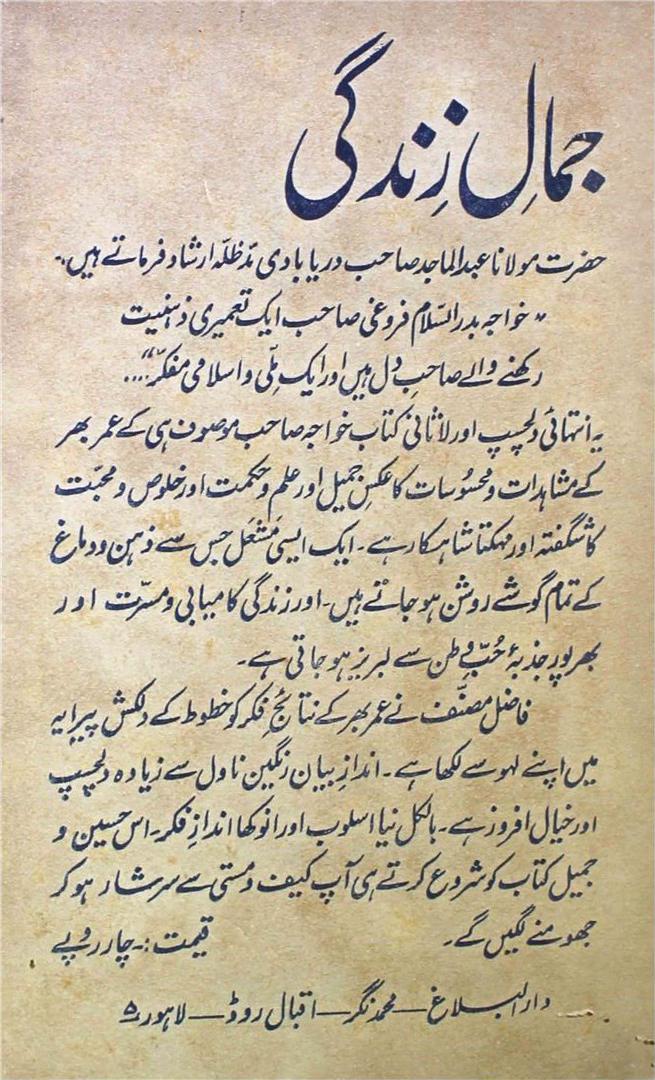 جمالِ زندگی
حضرت مولانا عبدالماجد صاحب دریابادی مدّظلّہ ارشاد فرماتے ہیں:۔
"خواجہ بدرالسّلام فروغی صاحب ایک تعمیری ذہنیت
رکھنے والے صاحبِ دل ہیں اور ایک ملّی و اسلامی مفکّر"....
یہ انتہائی دلچسپ اور لاثانی کتاب خواجہ صاحب موصوف ہی کے عمر بھر
کے مشاہدات و محسُوسات کا عکسِ جمیل اور علم و حکمت اور خلوص و محبّت
کا شگفتہ اور مہکتا شاہکار ہے۔ ایک ایسی مَشعَل جس سے ذہن و دماغ
کے تمام گوشے روشن ہو جاتے ہیں۔ اور زندگی کامیابی و مسرّت اور
بھرپور جذبۂ حُبِّ وطن سے لبریز ہو جاتی ہے۔
فاضل مصنّف نے عمر بھر کے نتائجِ فکر کو خطوط کے دلکش پیرایہ
میں اپنے لہو سے لکھا ہے۔ اندازِ بیان رنگین ناول سے زیادہ دلچسپ
اور خیال افروز ہے۔ بالکل نیا اسلوب اور انوکھا اندازِ فکر۔ اس حسین و
جمیل کتاب کو شروع کرتے ہی آپ کیف و مستی سے سرشار ہو کر
جھومنے لگیں گے۔ قیمت:۔ چار روپے
دارالبلاغ — محمد نگر — اقبال روڈ — لاہور ۵